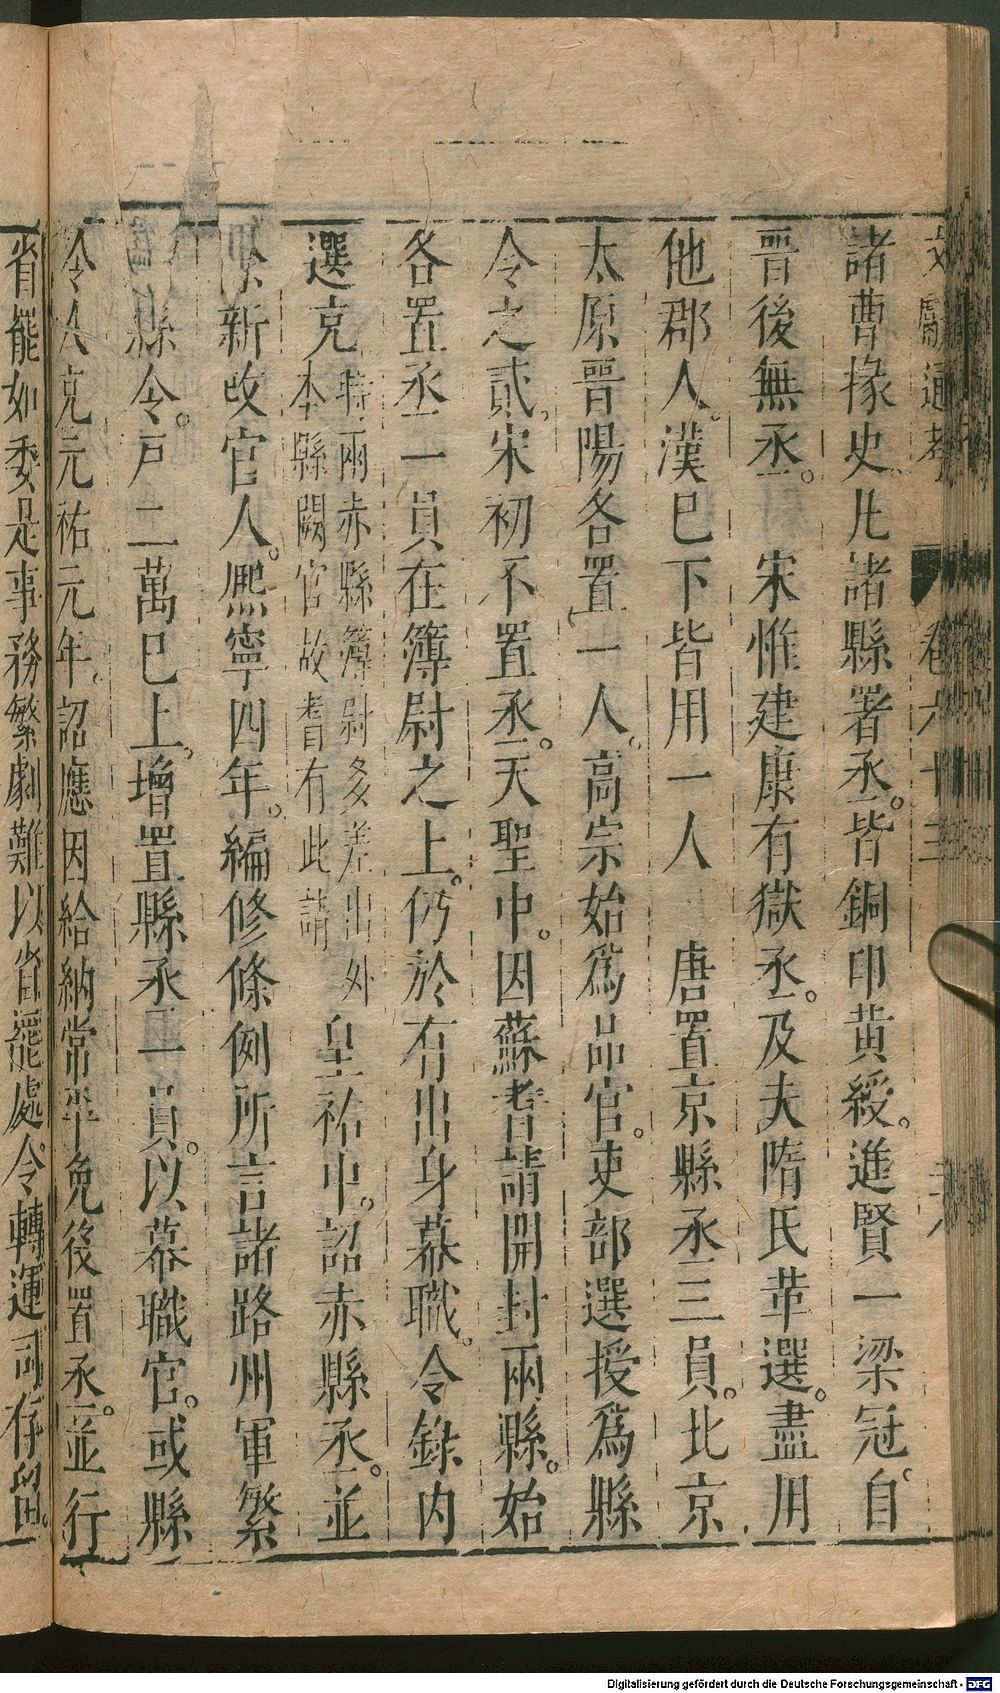 文獻通考　卷六十三　
諸曹掾史凡諸縣署丞皆銅印黃綬。進賢一梁冠。自
晉後無丞。　宋惟建康有獄丞。及夫隋氏革選。盡用
他郡人。漢已下皆用一人　唐置京縣丞三員。北京
太原晉陽各置一人。高宗始爲品官。吏部選授爲縣
令之貳。宋初不置丞。天聖中。因蘇耆請開封兩縣。始
各置丞一員在簿尉之上。仍於有出身幕職。令錄內
選充時兩赤縣簿尉多差出外本縣闕官故耆有此請　皇祐中。詔赤縣丞。並
除新改官人。熙寧四年。編修條例所言諸路州軍繁
縣令。戶二萬已上。增置縣丞一員。以幕職官。或縣
令人充元祐元年。詔應因給納常平免役置丞。並行
省罷如委是事務繁劇難以省罷處。令轉運司存留。
Digitalisierung gefördert durch die Deutsche Forschungsgemeinschaft - DFG